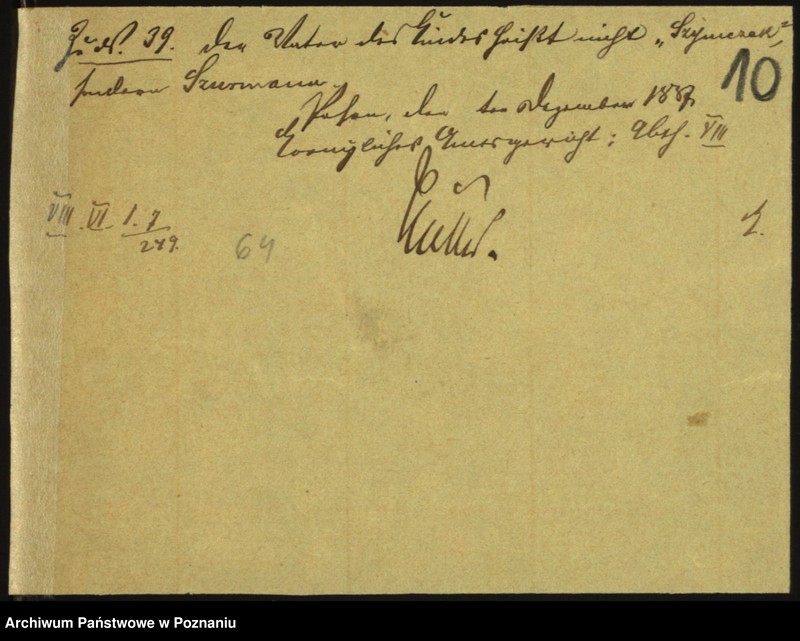 Zu No. 39. Der Vater des Kindes heißt nicht „Szymczak“, 10
sondern Szurmann.
Posen, den ten Dezember 1887
Koenigliches Amtsgericht; Abth. VIII
VIII. VI. 1. 7
279.
64
Archiwum Państwowe w Poznaniu